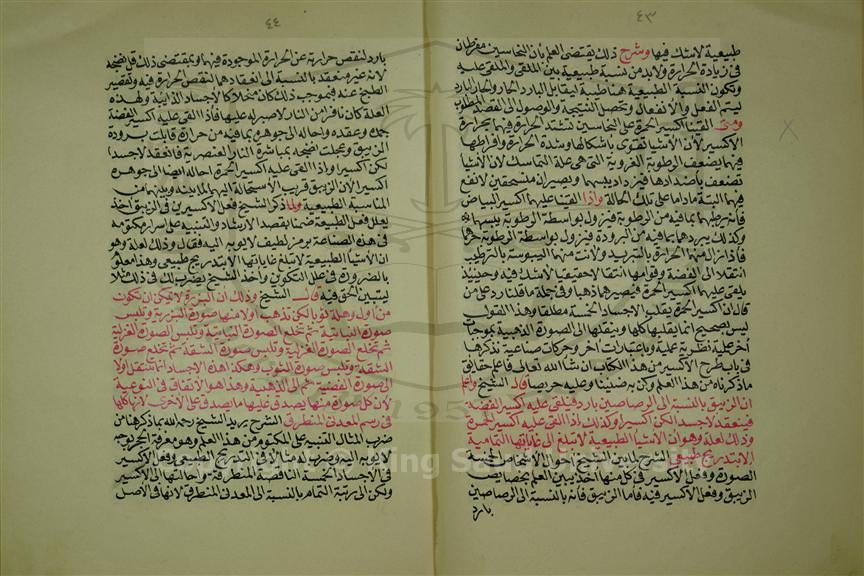 ٤٣
طبيعية لاشك فيها وشرح ذلك يقتضى العلم بأن النحاسين مفرطان
فى زيادة الحرارة ولابد من نسبة طبيعية بين الملقى والملقى عليه
وتكون النسبة الطبيعية هنا طبية ليقابل البارد الحار والحار البارد
ليتم الفعل والانفعال وتحصل النتيجة والوصول الى القصد المطلوب
ومتى القينا اكسير الحمرة على النحاسين تشتد الحرارة فيهما بحرارة
الاكسير لأن الاشيا تقوى باشكالها وشدة الحرارة وافراطها
فيها يضعف الرطوبة الغروية التى هى علة التماسك لان الاشيا
تضعف باضدادها فيزداد يبسها ويصيران منسحقين لانفع
فيها البتة ماداما على تلك الحالة واذا القينا عليهما اكسير البياض
فانه يرطبهما بمافيه من الرطوبة فيزول بواسطة الرطوبة يبسهما
وكذلك يبردهما بمافيه من البرودة فيزول بواسطة الرطوبة حرهما
فاذا زال منهما الحرارة بالتبريد ولانت منهما اليبوسة بالترطيب
انتقلا الى الفضة وقوامها انتقالا حقيقيا لاشك فيه وحينئذ
يلقى عليهما اكسير الحمرة فيصيرهما ذهبا وفى جملة ماقلنا رد على من
قال ان اكسير الحمرة يقلب الاجساد الخمسة مطلقا وهذا القول
ليس بصحيح انما يقلبها كلها وينقلها الى الصورة الذهبية بموجبات
أخر علمية نظرية عملية وباعتبارات اخر وحركات صناعية نذكرها
فى باب طرح الاكسير من هذا الكتاب ان شا الله تعالى فاعلم حقائق
ماذكرناه من هذا العلم وكن به ضنينا وعليه حريصا قال الشيخ واعلم
ان الزيبق بالنسبة الى الرصاصين بارد فيلقى عليه اكسير الفضة
فينعقد لاجسد الكن اكسيرا وكذلك اذا القى عليه اكسير الحمرة
وذلك لعلة وهو ان الاشيا الطبيعية لا تبلغ الى غاياتها التمامية
الا بتدريج طبيعى الشرح لما بين الشيخ حول الاشخاص الخمسة
الصورة وفعل الاكسير فى كل منها اخذ يبين العلم بخصايص
الزيبق وفعل الاكسير فيه فاما الزيبق فانه بالنسبة الى الرصاصين
بارد
٤٤
بارد لنقص حرارته عن الحرارة الموجودة فيهما وبمقتضى ذلك قل نضجه
لانه غير منعقد بالنسبة الى انعقادهما لنقص الحرارة فيه وتقصير
الطبخ عنه فبموجب ذلك كان متخلا كالاجساد الذايبة ولهذه
العلة كان نافرا من النار لاصبر له عليها فاذا القى عليه اكسير الفضة
جمده وعقده واحاله الى جوهره بمافيه من حرارة قابلت برودة
الزيبق وعجلت نضجه بمباشرة النار العنصرية به فانعقد لاجسدا
لكن اكسيرا واذا القى عليه اكسير الحمرة احاله ايضا الى جوهره
اكسيرا لان الزيبق قريب الاستحالة اليهما لما بينه وبينهما من
المناسبة الطبيعية ولما ذكر الشيخ فعل الاكسيرين فى الزيبق اخذ
يعلل فعل الطبيعة ضمنا بقصد الارشاد والتنبيه على اسرار مكتومة
فى هذه الصناعة برمز لطيف لايوبه اليه فقال وذلك لعلة وهو
ان الأشيا الطبيعية لا تبلغ غاياتها الا بتدريج طبيعى وهذا معلوم
بالضرورة فى علل التكوين واخذ الشيخ يضرب لك فى ذلك مثلا
ليتبين الحق فيه قال الشيخ وذلك ان البزرة لايمكن ان تكون
من اول وهلة ثوبا لكن تذهب اولا منها صورة البزرية وتلبس
صورة النباتية ثم تخلع الصورة النباتية وتلبس الصورة الغزلية
ثم تخلع الصورة الغزلية وتلبس صورة الشقة ثم تخلع صورة
الشقة وتلبس صورة الثوب وهكذا هذه الاجساد انما تنتقل اولا
الى صورة الفضية ثم الى الذهبية وهذا هو الاتفاق فى النوعية
لان كل صورة منها يصدق عليها مايصدق على الاخرى لانها كلها
فى رسم المعدنى المنطرق الشرح يريد الشيخ رحمه الله بما ذكرها من
ضرب المثال التنبيه على المكتوم من هذا العلم وهو معرفة الحجر لوجه
لايوبه اليه وضرب له مثالا فى التدريج الطبيعى وفعل الاكسير
فى الاجساد الخمسة الناقصة المنطرقة واحالتها الى الاكسير
ولكن الى رتبة التمام بالنسبة الى المعدنى المنطرقة لانها فى الأصل